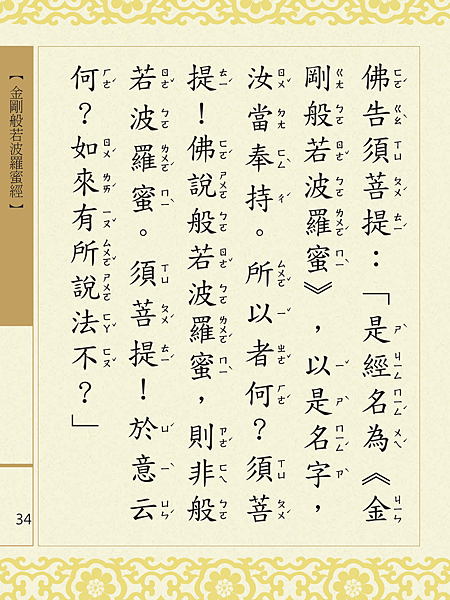 佛告須菩提：「是經名為《金
剛般若波羅蜜》，以是名字，
汝當奉持。所以者何？須菩
提！佛說般若波羅蜜，則非般
若波羅蜜。須菩提！於意云
何？如來有所說法不？」
【金剛般若波羅蜜經】
34